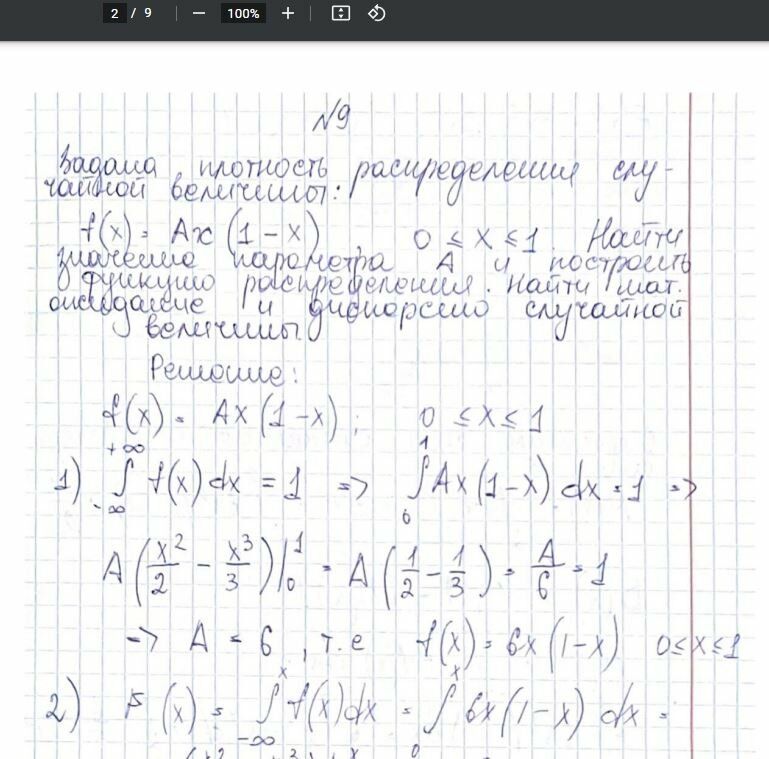 2 / 9 — 100% +
№9
Задана плотность распределения слу-
чайной величины:
f(x) = Ax (1 - x) 0 ≤ x ≤ 1. Найти
значение параметра A и построить
функцию распределения. Найти мат.
ожидание и дисперсию случайной
величины.
Решение:
f(x) = Ax (1 - x); 0 ≤ x ≤ 1
1) ∫_{-∞}^{+∞} f(x) dx = 1 => ∫_0^1 Ax (1 - x) dx = 1 =>
A (x²/2 - x³/3) |_0^1 = A (1/2 - 1/3) = A/6 = 1
=> A = 6, т.е f(x) = 6x (1 - x) 0 ≤ x ≤ 1
2) F (x) = ∫_{-∞}^x f(x) dx = ∫_0^x 6x (1 - x) dx =